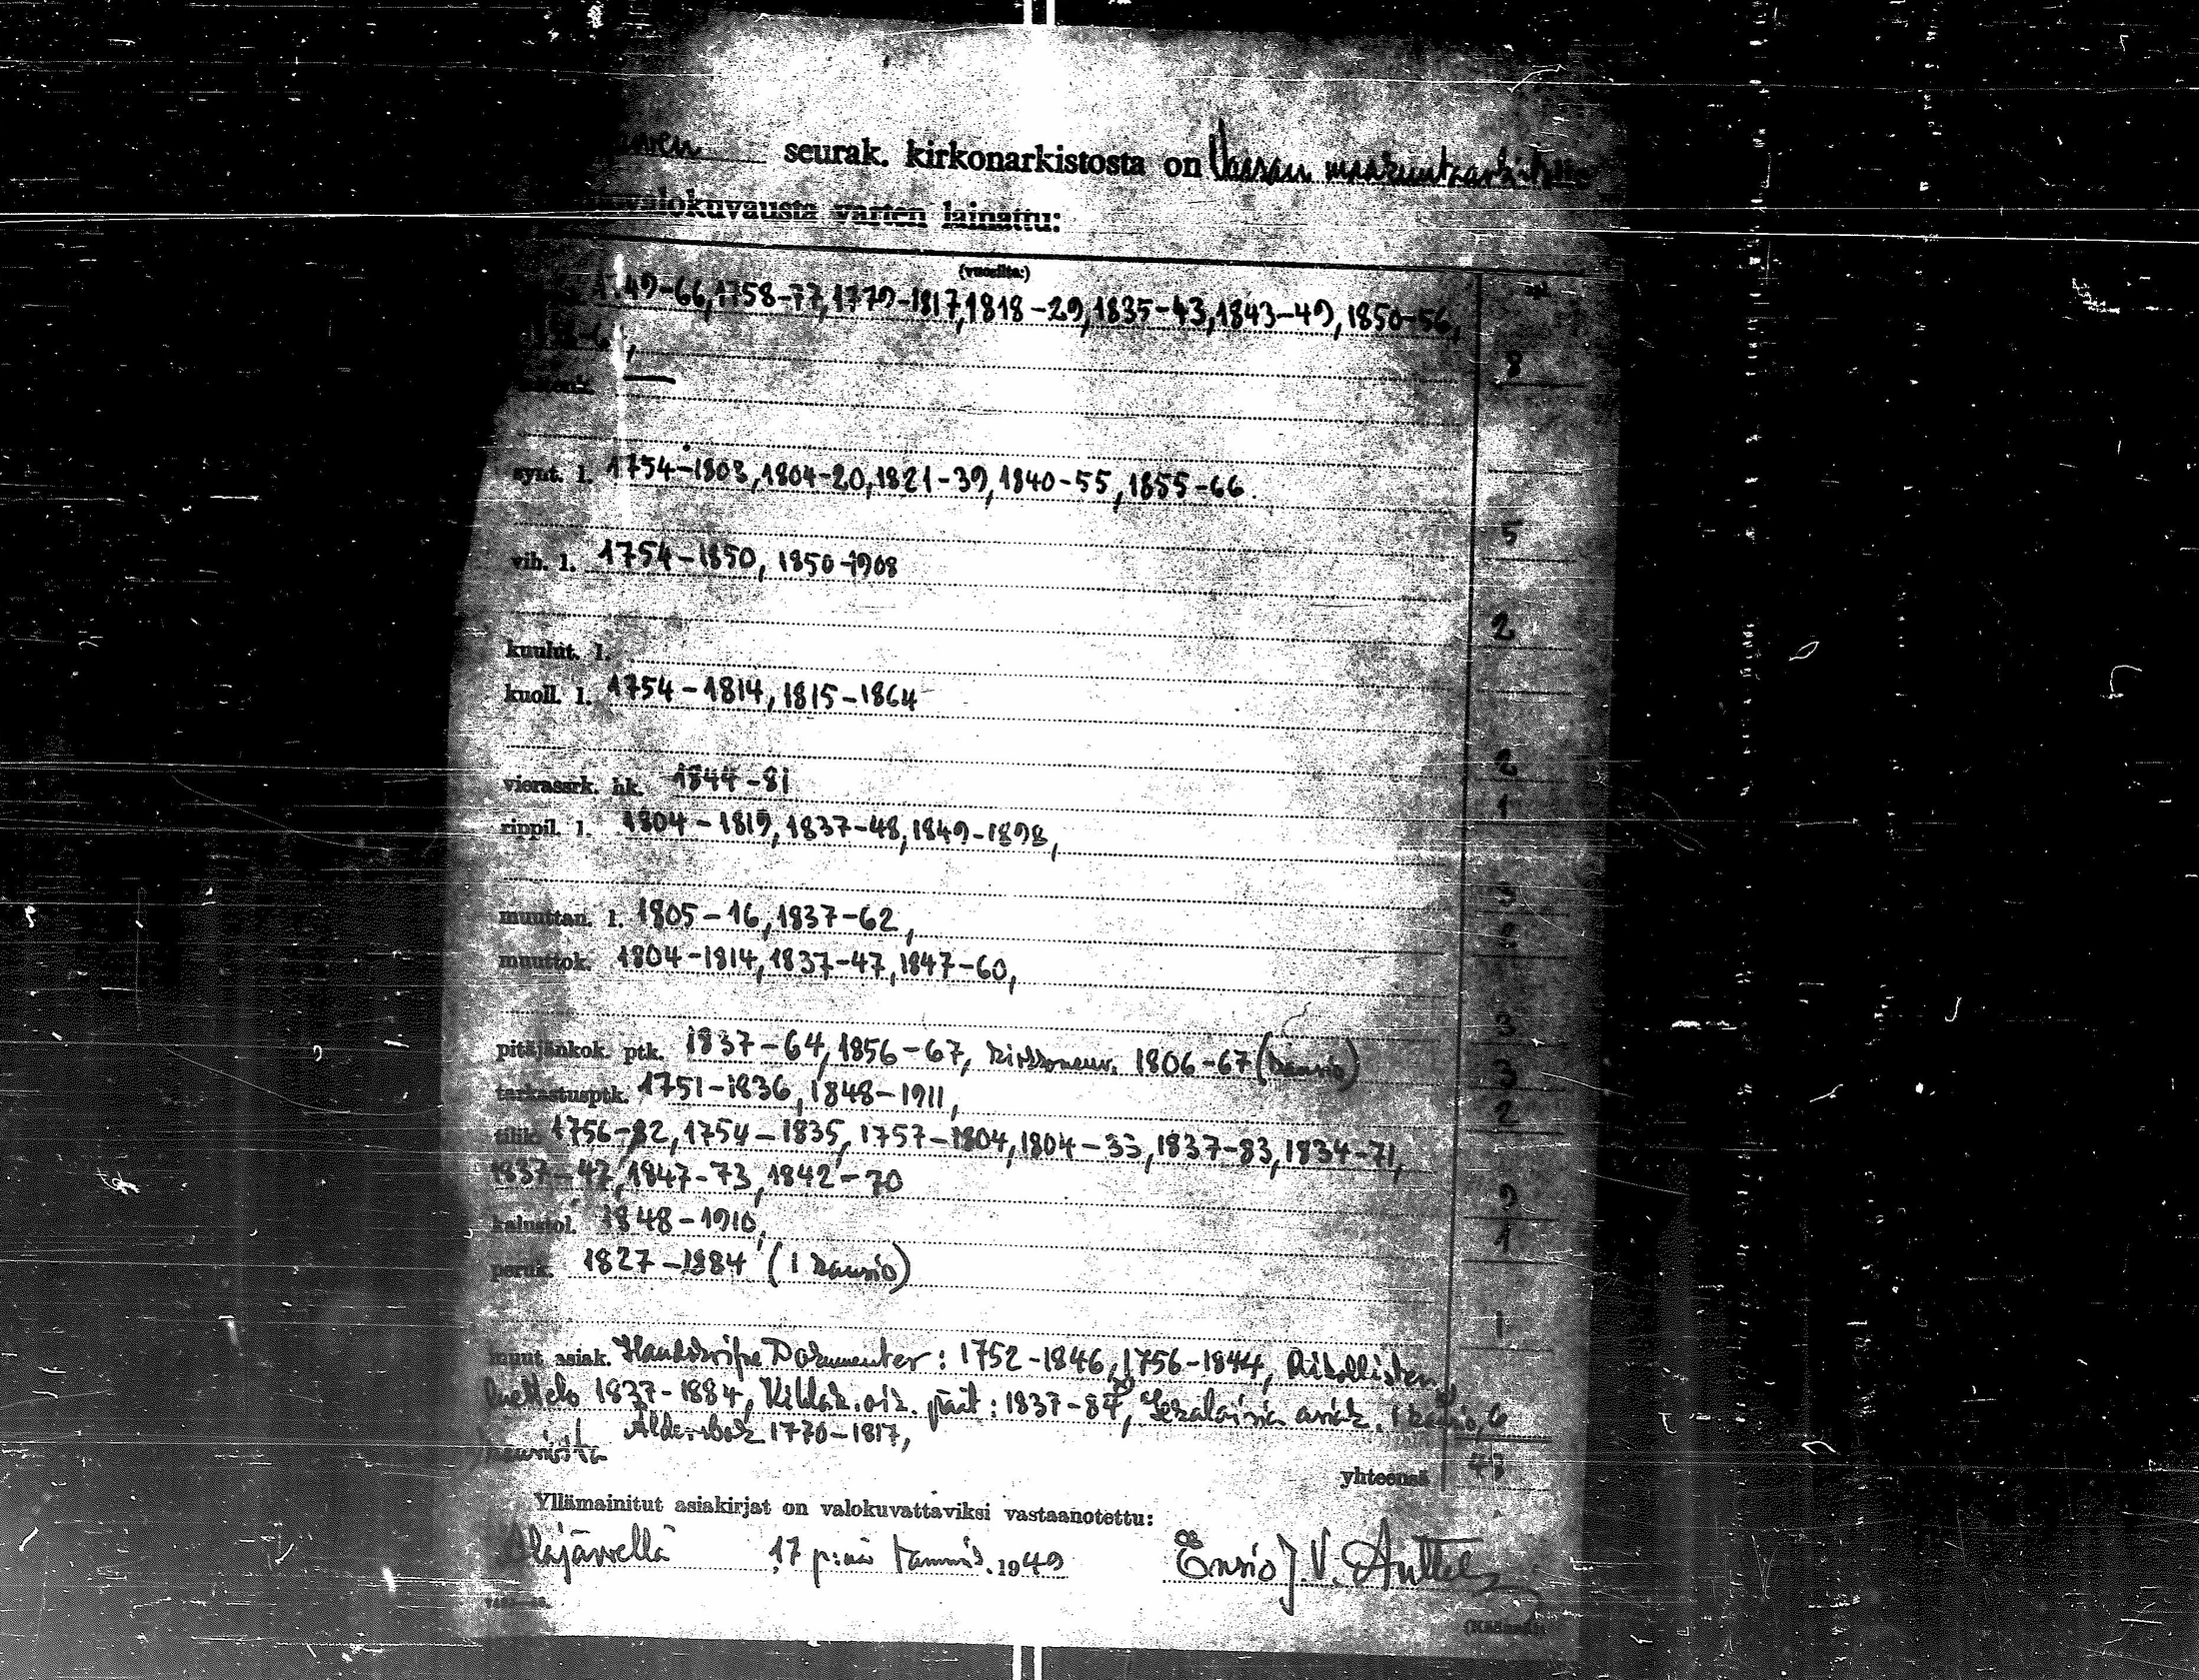 seurak. kirkonarkistosta on Vaasan maakuntaarkistolle
valokuvausta varten lainattu:
(vuosilta:)
49-66, 1758-77, 1779-1817, 1818-29, 1835-43, 1843-49, 1850-56,
8
synt. l. 1754-1803, 1804-20, 1821-39, 1840-55, 1855-66.
5
vih. l. 1754-1850, 1850-1908
2
kuulut. l.
kuoll. l. 1754-1814, 1815-1864
2
vierasark. hk. 1844-81 1
rippil. l. 1804-1819, 1837-48, 1849-1898,
3
muuttan. l. 1805-16, 1837-62, 2
muuttok. 1804-1814, 1837-47, 1847-60,
3
pitäjänkok. ptk. 1837-64, 1856-67, kirkkoneuv. 1806-67 (kansio) 3
tarkastusptk. 1751-1836, 1848-1911, 2
tilik. 1756-82, 1754-1835, 1757-1804, 1804-33, 1837-83, 1834-71,
1837-47, 1847-73, 1842-70 9
kalustol. 1848-1910, 1
peruk. 1827-1884 (1 kansio)
1
muut asiak. Handskrifne Dokumenter: 1752-1846, 1756-1844, Rikollisten
luettelo 1837-1884, Kihlak. oik. päät: 1837-84, Sekalaisia asiak. 1 kansio, 6
Äldersbok 1770-1817,
yhteensä 48
Yllämainitut asiakirjat on valokuvattaviksi vastaanotettu:
Alajärvellä 17 p:nä tammik. 1949 Ensio J. V. Anttel